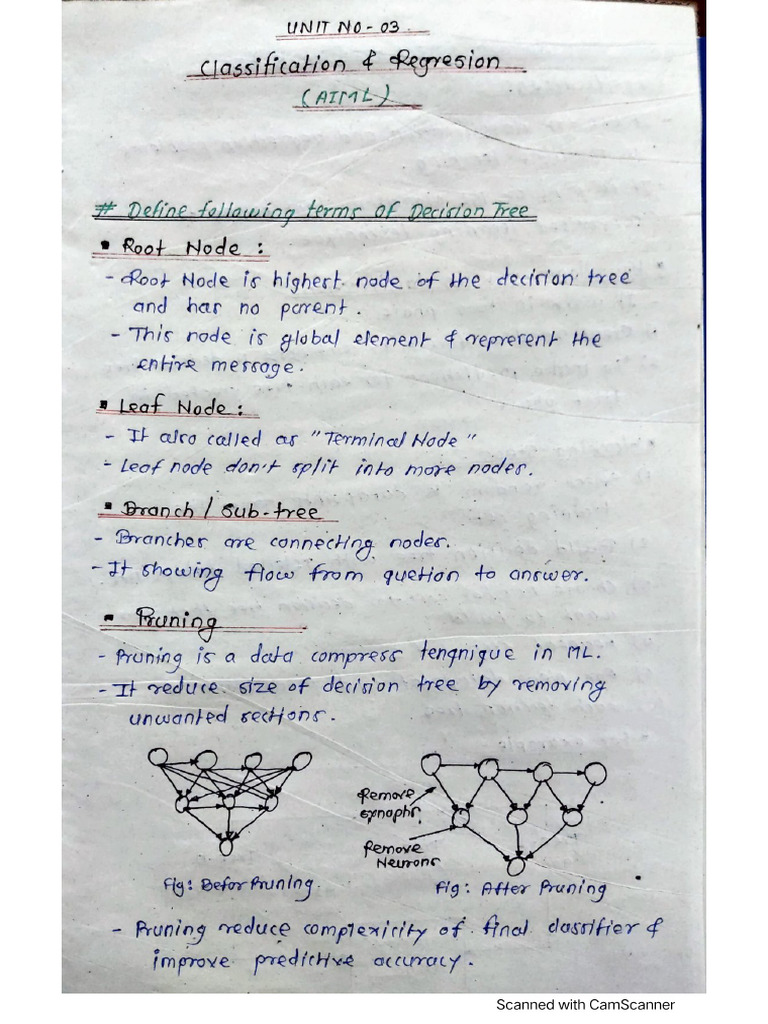 UNIT NO - 03
Classification & Regresion
(AIML)
# Define following terms of Decision Tree
▪ Root Node :
- Root Node is highest node of the decision tree
and has no parent.
- This node is global element & represent the
entire message.
▪ Leaf Node :
- It also called as "Terminal Node"
- Leaf node don't split into more nodes.
▪ Branch / Sub-tree
- Branches are connecting nodes.
- It showing flow from quetion to answer.
▪ Pruning
- Pruning is a data compress tenqnique in ML.
- It reduce size of decision tree by removing
unwanted sections.
Remove
synaphs.
Remove
Neurons
Fig: Befor Pruning.
Fig: After Pruning
- Pruning reduce complexicity of final classifier &
improve predictive accuracy.
Scanned with CamScanner